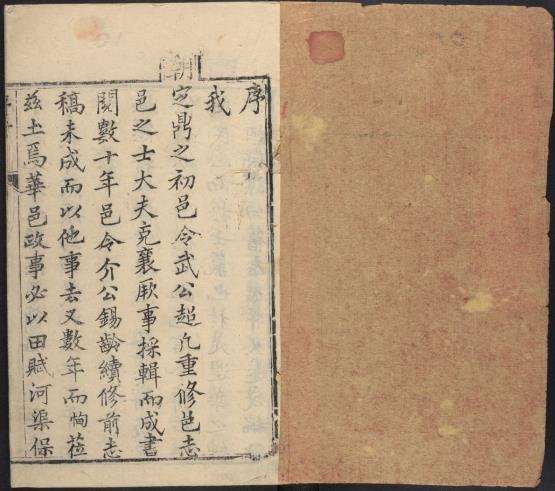 序
我
朝定鼎之初邑令武公超凡重修邑志
邑之士大夫克襄厥事採輯而成書
閱數十年邑令介公錫齡續修前志
稿未成而以他事去又數年而恂蒞
茲土焉華邑政事必以田賦河渠保